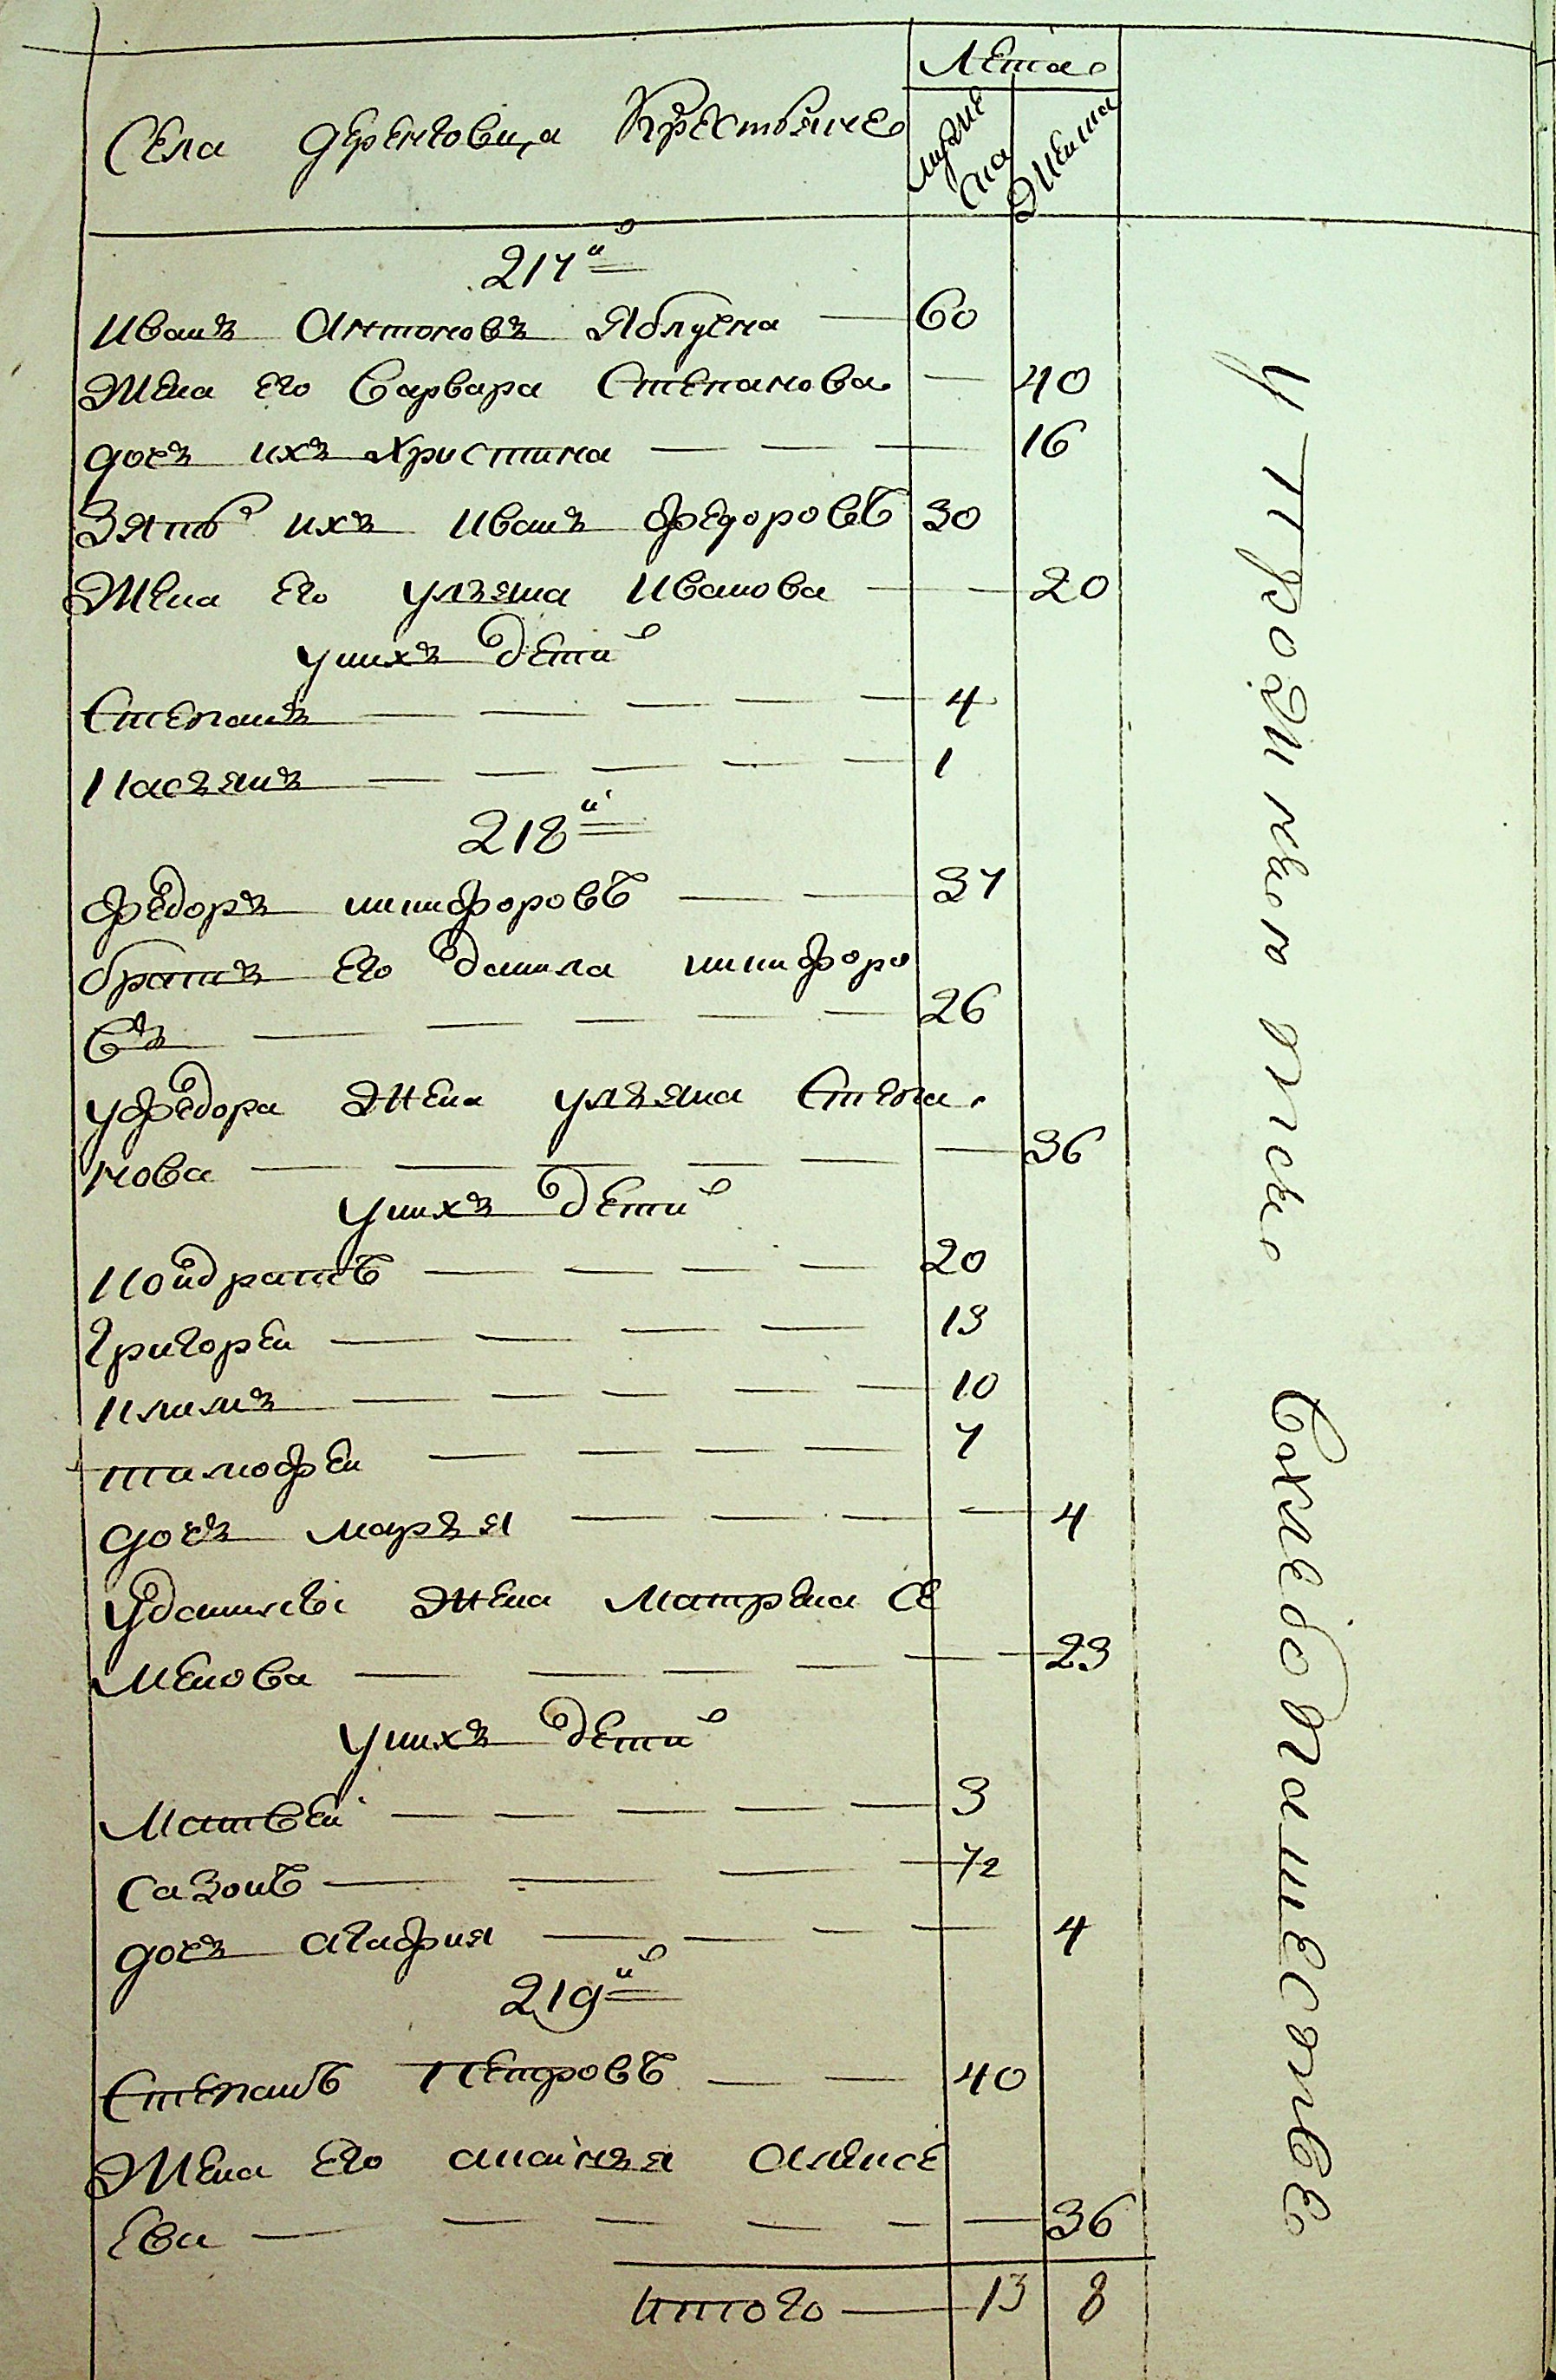 Лета
Села деренговца Крестьяне
мужеска
Женска
217й
Иванъ Антоновъ Яблучна — 60
Жена его Варвара Степанова — 40
дочъ ихъ Христина — — — 16
Зять ихъ Иванъ Федоровъ 30
Жена его улъяна Иванова — — 20
унихъ дети
Степанъ — — — — — 4
Касъянъ — — — — — 1
218й
Федоръ никифоровъ — — 37
братъ его данила никифоро
въ — — — — — 26
уфедора жена улъяна Степа
нова — — — — — — — 36
унихъ дети
Кондратъ — — — — 20
Григорей — — — — 13
Климъ — — — — — 10
тимофей — — — — 7
дочъ маръя — — — — 4
уданилы жена Матрена Се
менова — — — — — — 23
унихъ дети
Матвей — — — — — 3
Сазонъ — — — — 1/2
дочъ агафия — — — — 4
219й
Степанъ Петровъ — — 40
Жена его ананъя Алексе
ева — — — — — — 36
итого — 13 8